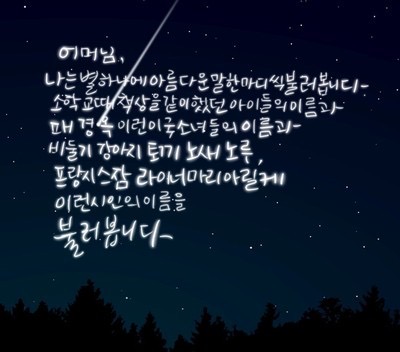 어머님,
나는 별 하나에 아름다운 말 한마디씩 불러봅니다-
소학교때 책상을 같이 했던 아이들의 이름과-
패 경 옥 이런 이국소녀들의 이름과-
비둘기 강아지 토끼 노새 노루,
프랑시스 잠 라이너 마리아 릴케
이런 시인의 이름을
불러 봅니다-